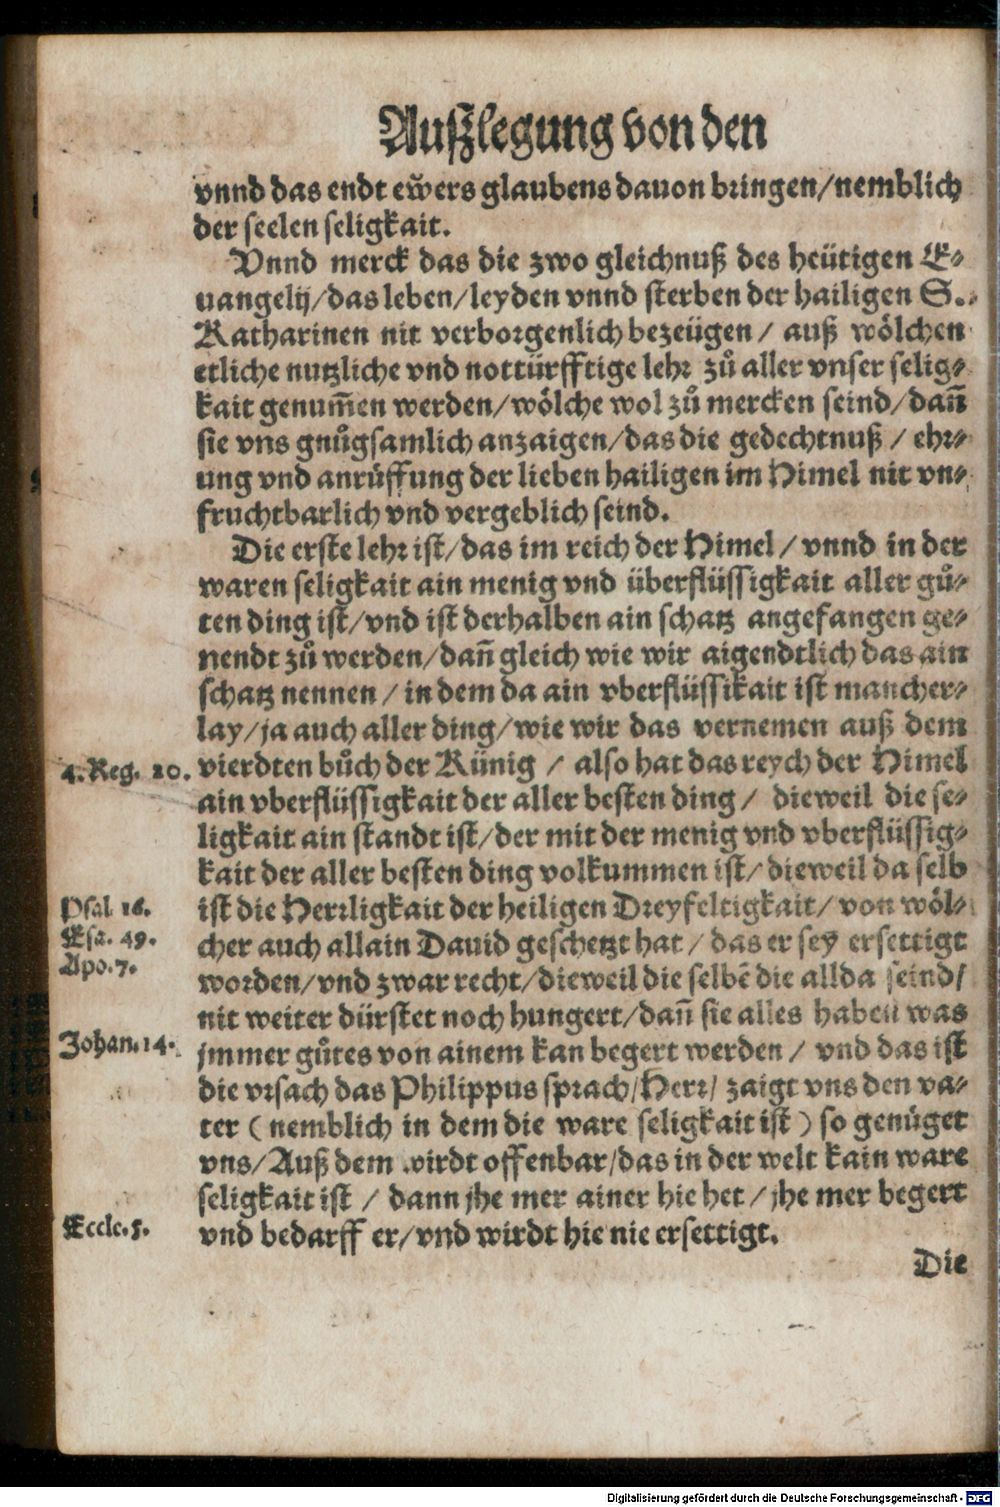 Außlegung von den
vnnd das endt ewers glaubens dauon bringen/nemblich
der seelen seligkait.
Vnnd merck das die zwo gleichnuß des heütigen E⸗
uangelij/das leben/leyden vnnd sterben der hailigen S.
Katharinen nit verborgenlich bezeügen/ auß wölchen
etliche nutzliche vnd nottürfftige lehr zů aller vnser selig⸗
kait genum̃en werden/wölche wol zů mercken seind/dañ
sie vns gnůgsamlich anzaigen/das die gedechtnuß / ehr⸗
ung vnd anrüffung der lieben hailigen im Himel nit vn⸗
fruchtbarlich vnd vergeblich seind.
Die erste lehr ist/das im reich der Himel/ vnnd in der
waren seligkait ain menig vnd überflüssigkait aller gů⸗
ten ding ist/vnd ist derhalben ain schatz angefangen ge⸗
nendt zů werden/dañ gleich wie wir aigendtlich das ain
schatz nennen/ in dem da ain vberflüssikait ist mancher⸗
lay/ja auch aller ding/wie wir das vernemen auß dem
4. Reg. 20. vierdten bůch der Künig / also hat das reych der Himel
ain vberflüssigkait der aller besten ding/ dieweil die se⸗
ligkait ain standt ist/der mit der menig vnd vberflüssig⸗
kait der aller besten ding volkummen ist/dieweil da selb
Psal. 16. ist die Herrligkait der heiligen Dreyfeltigkait/von wöl⸗
Esa. 49. cher auch allain Dauid geschetzt hat/ das er sey ersettigt
Apo. 7. worden/vnd zwar recht/dieweil die selbẽ die allda seind/
nit weiter dürstet noch hungert/dañ sie alles haben was
Johan. 14. jmmer gůtes von ainem kan begert werden/ vnd das ist
die vrsach das Philippus sprach/Herr/ zaigt vns den va⸗
ter (nemblich in dem die ware seligkait ist) so genüget
vns/Auß dem wirdt offenbar/das in der welt kain ware
seligkait ist / dann jhe mer ainer hie het/ jhe mer begert
Eccle. 5. vnd bedarff er/vnd wirdt hie nie ersettigt.
Die
Digitalisierung gefördert durch die Deutsche Forschungsgemeinschaft - DFG